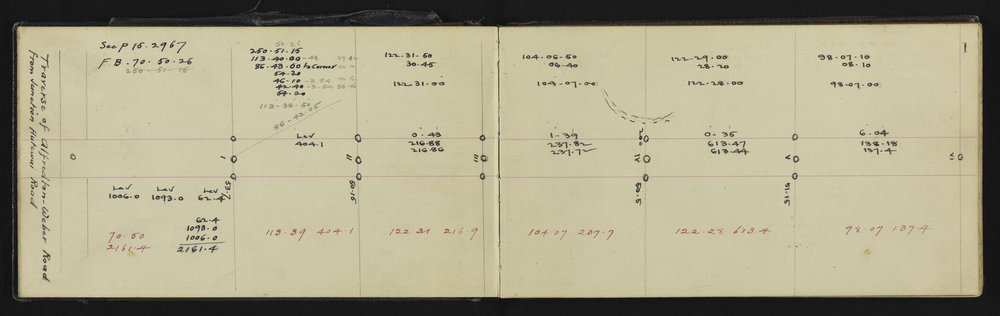 Traverse of Alfredton-Weber Road
from Junction Road
See p 15. 2967
F B. 70. 50. 26
250 - 51 15
Lev Lev Lev
1006.0 1093.0 62.4
62.4
1093.0
1006.0
2161.4
70. 50
2161.4
250. 51. 15
113. 40. 00
86. 43. 00 to Corner
54. 20
46. 10
42. 40
54. 20
113 - 38. 50
86 - 42. 05
Lev
404.1
I
113. 39 404.1
122. 31. 50
30. 45
122. 31. 00
0. 43
216.88
216.86
II
122. 31 216.9
III
104. 06. 50
06. 40
104. 07. 00
1. 39
237.82
237.72
104. 07 237.7
IV
122. 29. 00
28. 20
122. 28. 00
0. 35
613.47
613.44
122. 28 613.4
V
98. 07. 10
08. 10
98. 07. 00
6. 04
138.18
137.4
98. 07 137.4
VI
1